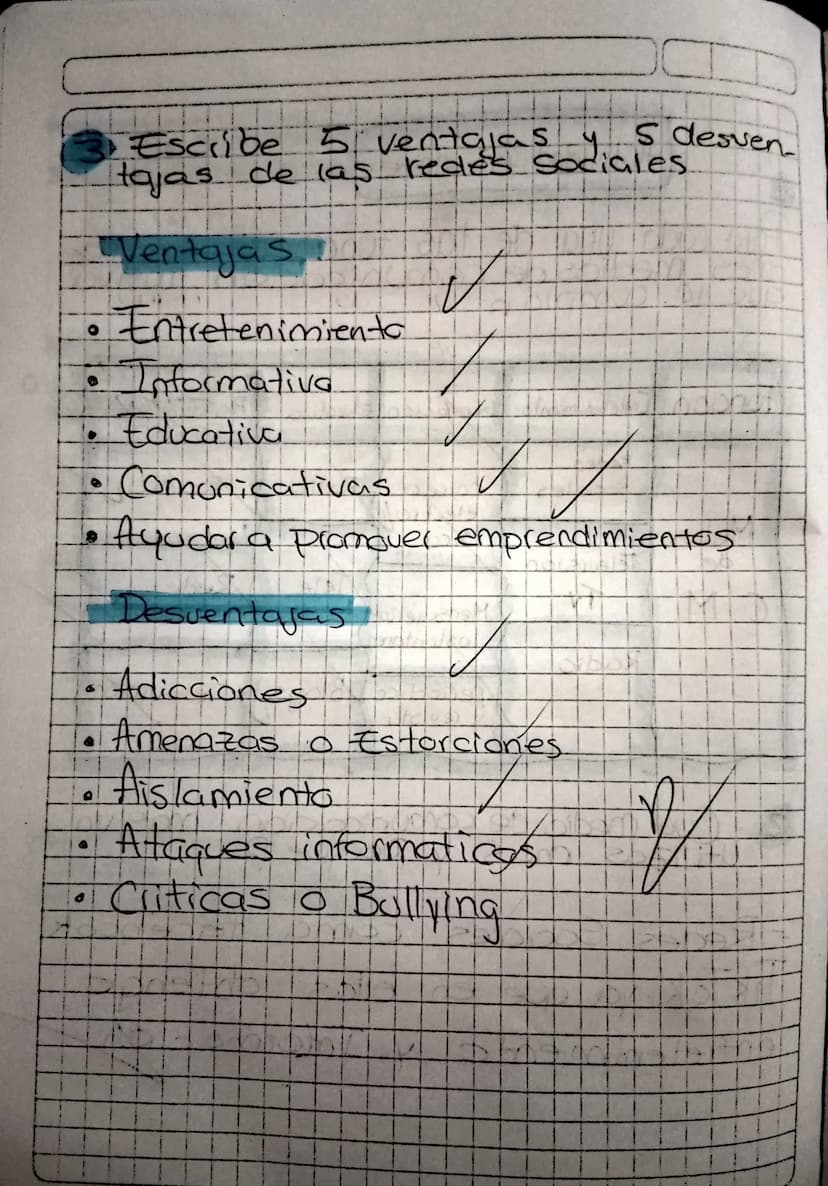 3) Escribe 5 ventajas y 5 desven-
tajas de las redes sociales
Ventajas
• Entretenimiento
• Informativa
• Educativa
• Comunicativas
• Ayudar a promover emprendimientos
Desventajas
• Adicciones
• Amenazas o Estorciones
• Aislamiento
• Ataques informaticos
• Criticas o Bullying